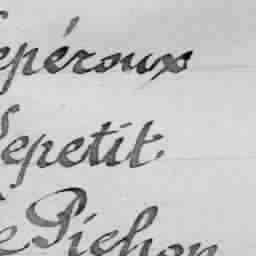 Lepéroux
Lepetit
Le Pichon